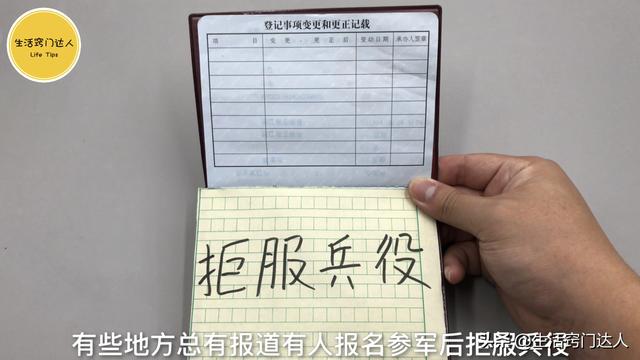 生活窍门达人
Life Tips
登记事项变更和更正记载
项 目 变 更 、 更 正 后 变动日期 承办人签章
拒服兵役
有些地方总有报道有人报名参军后拒服兵役
头条@生活窍门达人